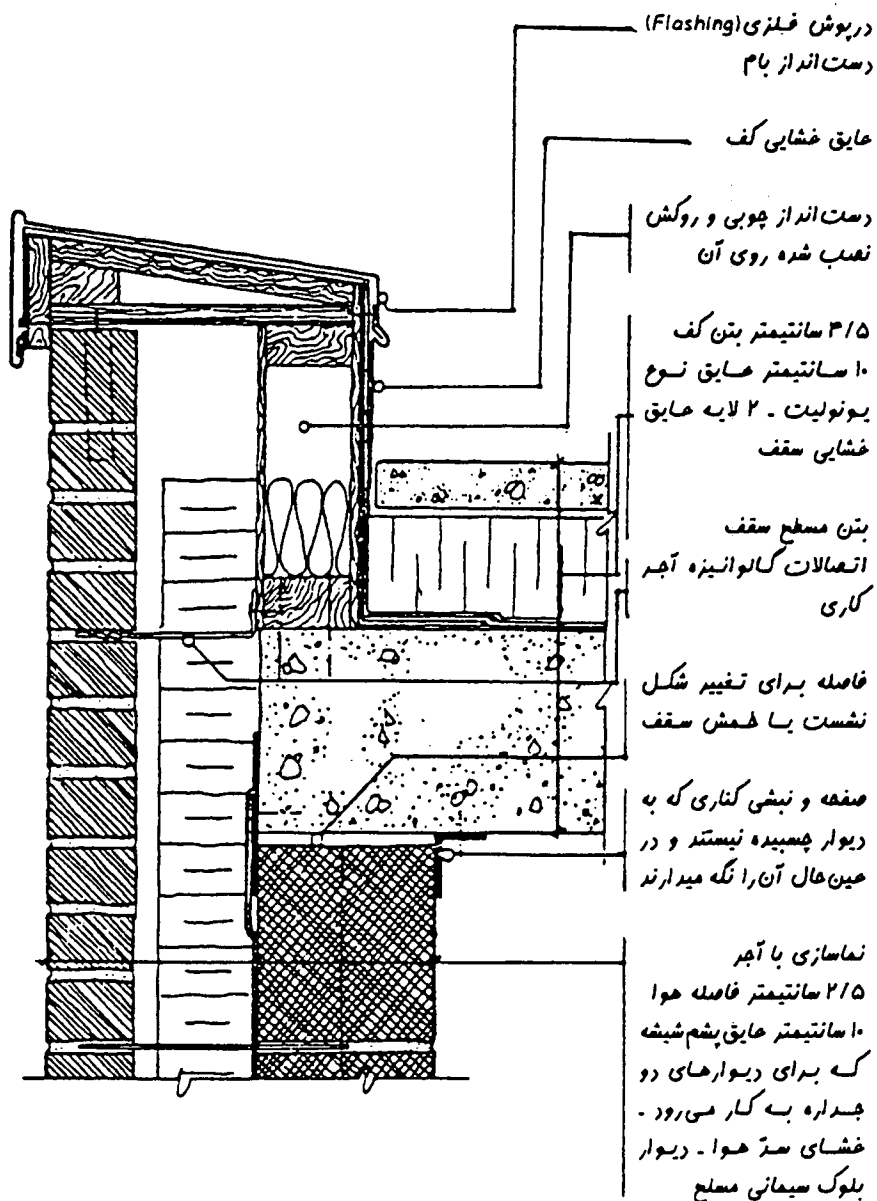 درپوش فلزی (Flashing)
دست‌انداز بام
عایق غشایی کف
دست‌انداز چوبی و روکش
نصب شده روی آن
۳/۵ سانتیمتر بتن کف
۱۰ سانتیمتر عایق نوع
یونولیت ـ ۲ لایه عایق
غشایی سقف
بتن مسطح سقف
اتصالات گالوانیزه آجر
کاری
فاصله برای تغییر شکل
نشست یا خمش سقف
صفحه و نبشی کناری که به
دیوار چسبیده نیستند و در
عین‌حال آن‌را نگه میدارند
نماسازی با آجر
۲/۵ سانتیمتر فاصله هوا
۱۰ سانتیمتر عایق پشم شیشه
که برای دیوارهای دو
جداره به کار می‌رود ـ
غشای سدّ هوا ـ دیوار
بلوک سیمانی مسلح